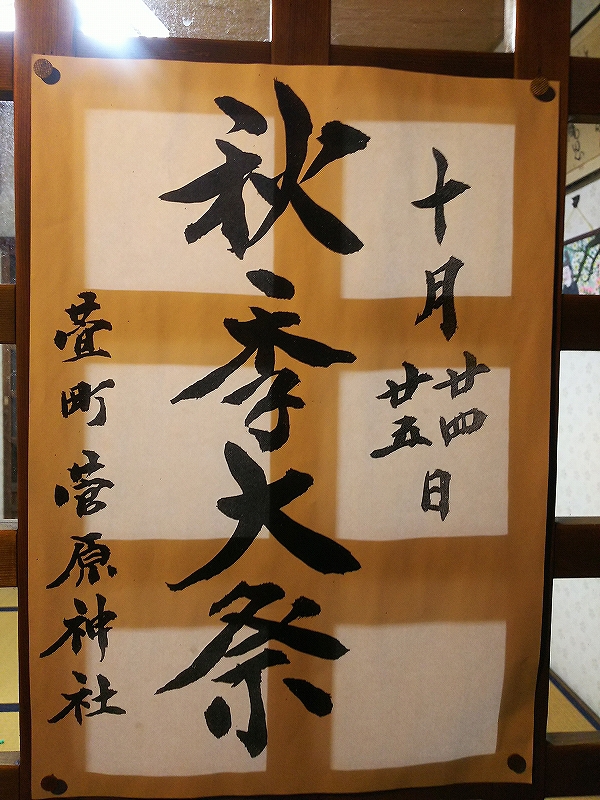 十月廿四廿五日
秋季大祭
萱町 菅原神社